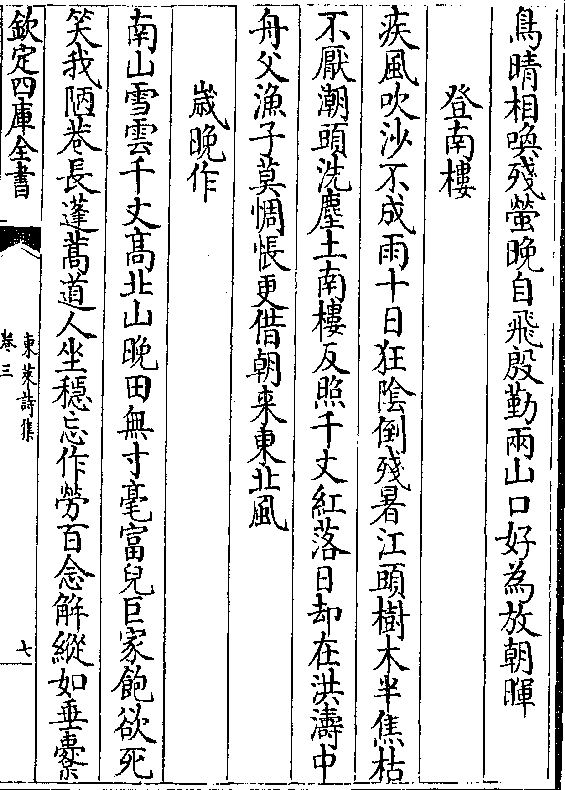 鳥晴相喚殘螢晚自飛殷勤兩山口好為放朝暉
登南樓
疾風吹沙不成雨十日狂陰倒殘暑江頭樹木半焦枯
不厭潮頭洗塵土南樓反照千丈紅落日却在洪濤中
舟父漁子莫惆悵更借朝来東北風
歲晚作
南山雪雲千丈高北山晚田無寸毫富兒巨家飽欲死
笑我陋巷長蓬蒿道人坐穩忘作勞百念解縱如垂櫜
欽定四庫全書
東萊詩集
卷三
七